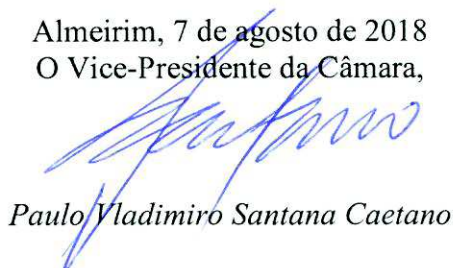 Almeirim, 7 de agosto de 2018
O Vice-Presidente da Câmara,
Paulo Vladimiro Santana Caetano